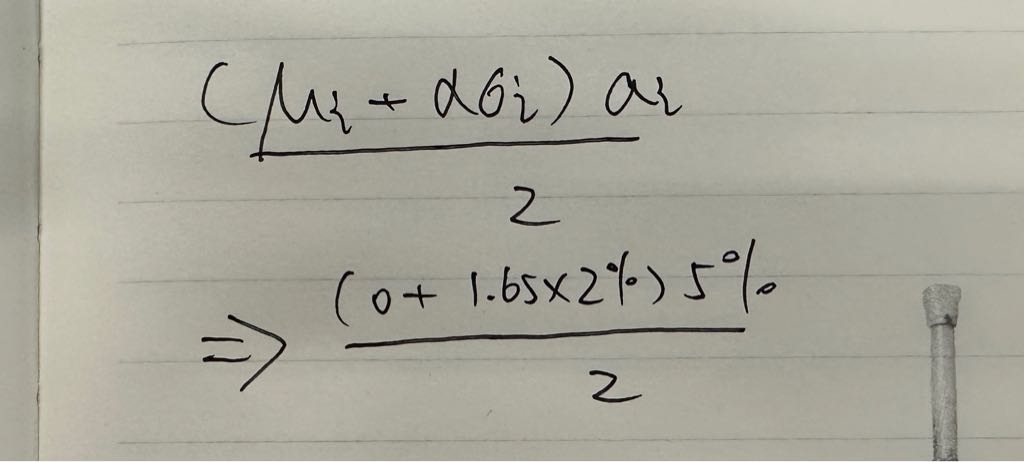 (μi + ασi) ai
2
⇒ (0 + 1.65×2%) 5%
2